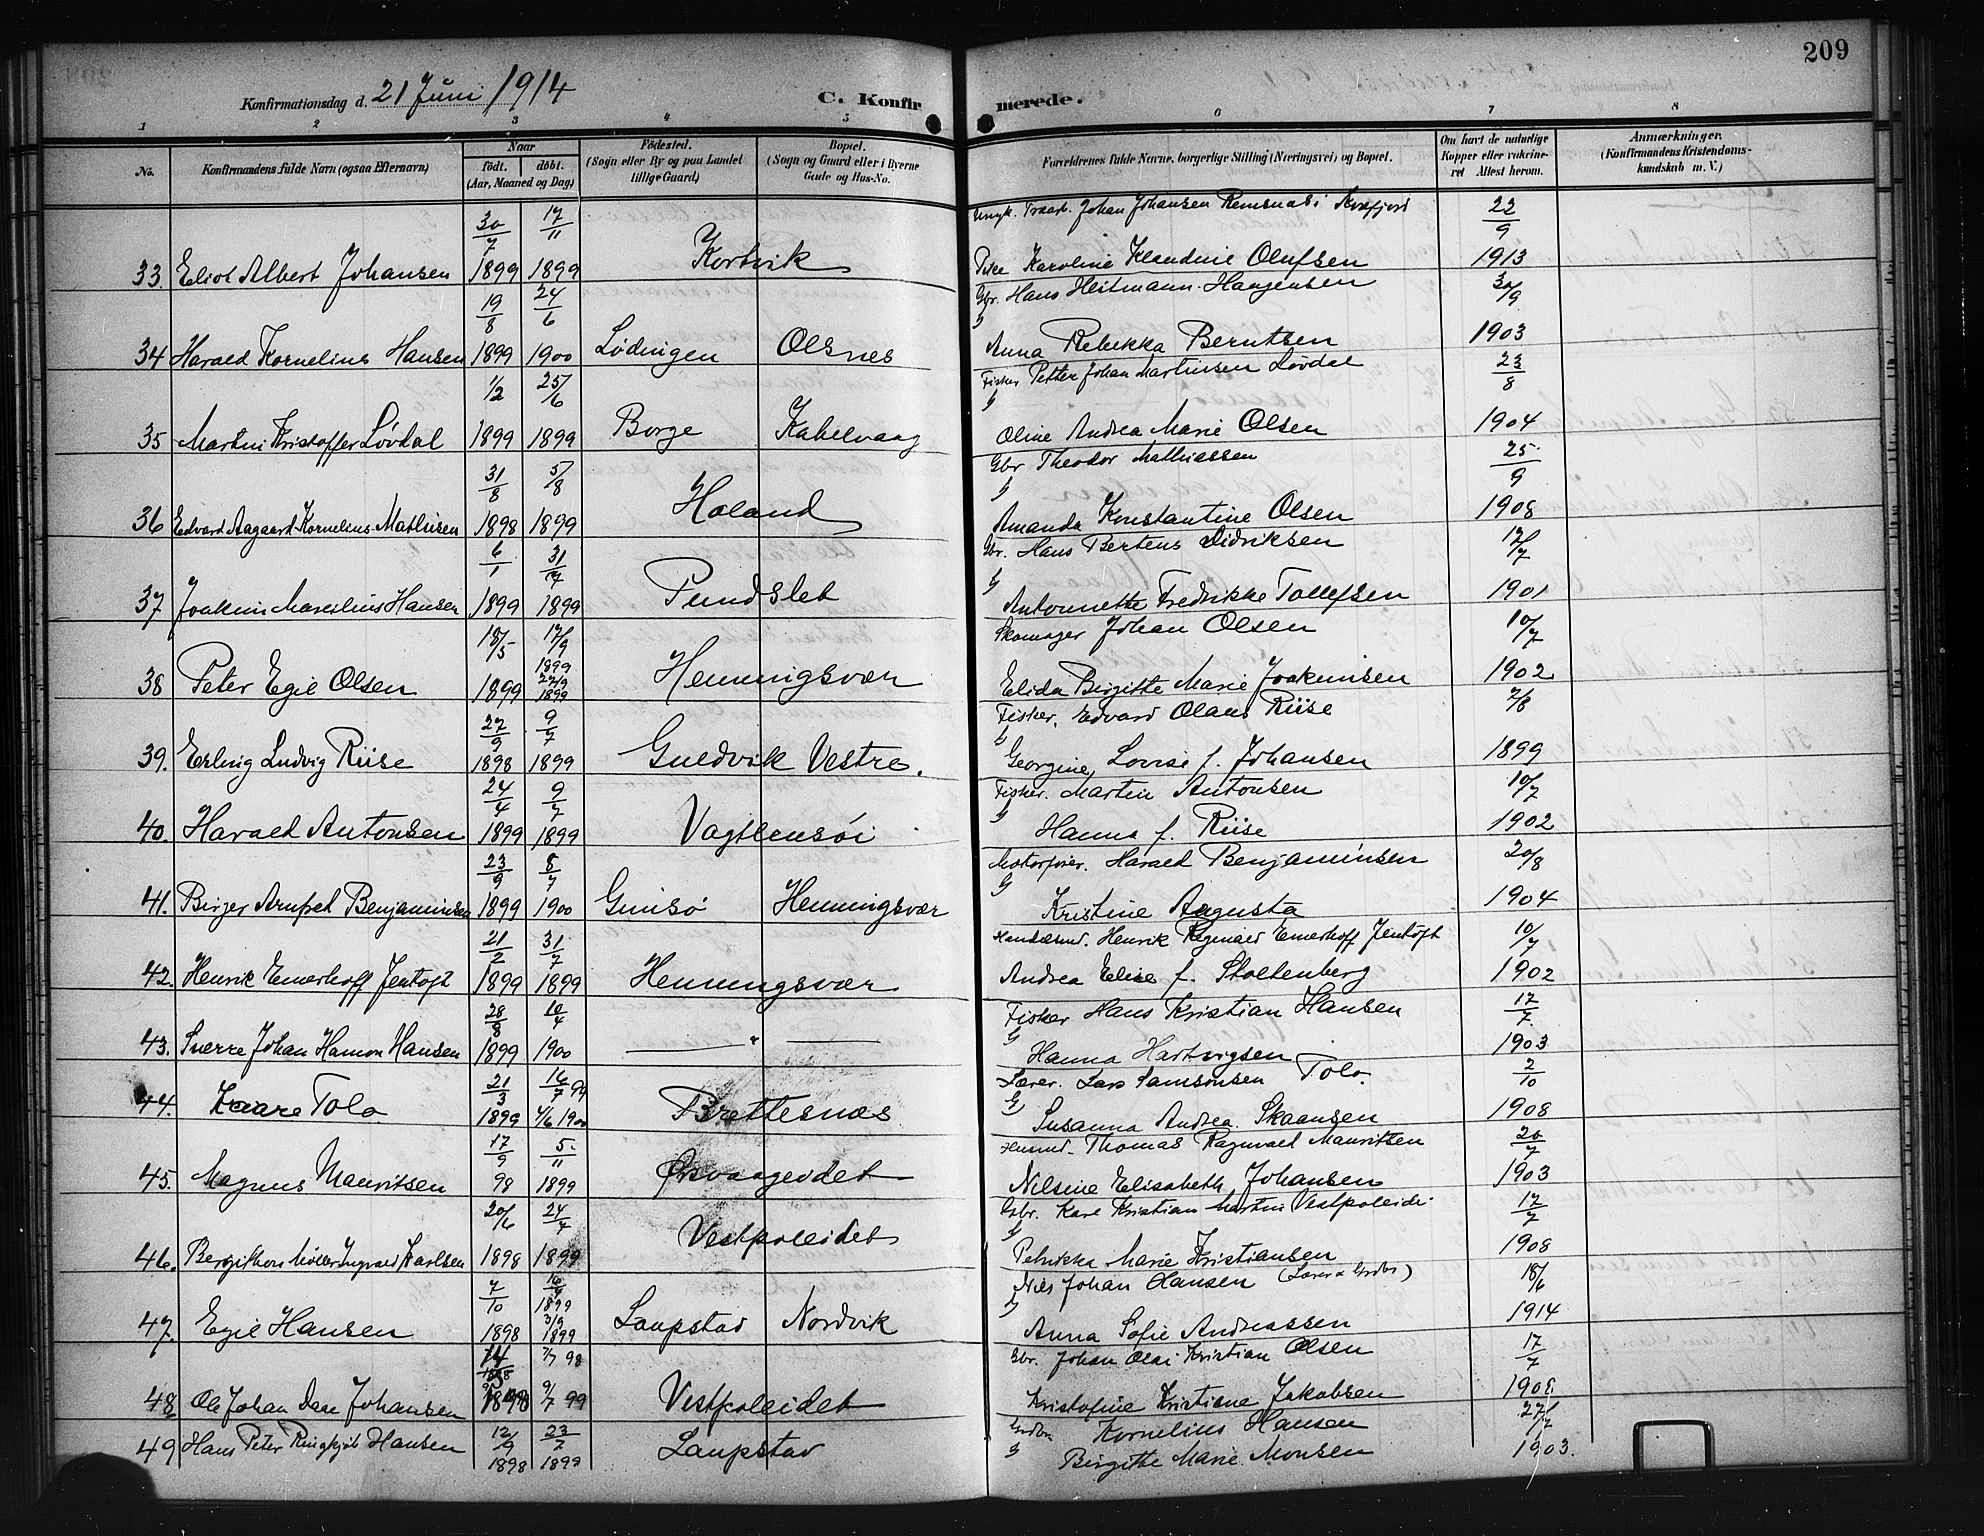 209
Konfirmationsdag d. 21 Juni 1914
C. Konfirmerede.
1 2 3 4 5 6 7 8
No. Konfirmandens fulde Navn (ogsaa Efternavn) Naar født. døbt. (Aar, Maaned og Dag) Fødested. (Sogn eller By og paa Landet tillige Gaard) Bopæl. (Sogn og Gaard eller i Byerne Gade og Hus-No. Forældrenes fulde Navne, borgerlige Stilling (Næringsvei) og Bopæl. Om havt de naturlige Kopper eller vakcineret Attest herom. Anmærkninger. (Konfirmandens Kristendomskundskab m. V.)
Johan Johansen
33. Eliot Albert Johansen 30/7 1899 17/11 1899 Kortvik Pike Karoline Klaudine Olufsen 22/9 1913
Gbr. Hans Heitmann
34 Harald Kornelius Hansen 19/8 1899 24/6 1900 Lødingen Olsnes Anna Rebekka Berntsen 30/9 1903
Fisker Petter Johan Martinsen Løvdal
35 Martin Kristoffer Løvdal 1/2 1899 25/6 1899 Borge Kabelvaag Oline Andrea Marie Olsen 23/8 1904
Gbr Theodor Mathiassen
36 Edvard Aagaard Kornelius Mathisen 31/8 1898 5/8 1899 Holand Amanda Konstantine Olsen 25/9 1908
Gbr. Hans Bertens Didriksen
37 Joakim Marcilius Hansen 6/1 1899 31/7 1899 Pundslet Antonnette Fredrikke Tollefsen 17/7 1901
Skomager Johan Olsen
38 Peter Egil Olsen 18/5 1899 17/9 1899 Henningsvær Elida Birgitte Marie Joakimsen 10/7 1902
Fisker. Edvard Olaus Riise
39. Erling Ludvig Riise 27/9 1898 9/7 1899 Guldvik Vestre. Georgine Lovise f. Johansen 7/8 1899
Fisker. Martin Antonsen
40. Harald Antonsen 24/4 1899 9/7 1899 Hanna f. Riise 10/7 1902
Motorfører. Harald Benjaminsen
41. Birger Arnfret Benjaminsen 23/9 1899 8/7 1900 Gimsø Henningsvær Kristine Augusta 20/8 1904
Henrik Reginald Emerhoff Jentoft
42. Henrik Emerhoff Jentoft 21/2 1899 31/7 1899 Henningsvær Andrea Elise f. Stoltenberg 10/7 1902
Fisker Hans Kristian Hansen
43. Sverre Johan Hamon Hansen 28/8 1899 16/4 1900 — " — Hanna Hartvigsen 17/7 1903
Lærer. Lars Samsonsen Tolo.
44. Kaare Tolo 21/3 1899 16/7 99 4/6 1900 Brettesnæs Susanna Andrea Skaansen 2/10 1908
Thomas Ragnvald Mauritsen
45. Magnus Mauritsen 17/9 98 5/11 1899 Ørsvaageidet Nilsine Elisabeth Johansen 20/7 1903
Gbr. Karl Kristian Martin Vestpoleidet
46. Karlsen 20/6 1898 24/7 1899 Vestpoleidet Petrikka Marie Kristiansen 17/7 1908
Nils Johan Hansen (Lærer o Grdbr)
47. Egil Hansen 7/10 1898 1899 3/9 1899 Laupstad Nordvik Anna Sofie Andreassen 18/6 1914
Gbr. Johan Olai Kristian Olsen
48. Ole Johan Johansen 1898 7/7 98 9/7 99 Vestpoleidet Kristofine Kristiane Jakobsen 17/7 1908.
Grdbr Kornelius Hansen
49 Hans Peter Ringkjøb Hansen 12/9 1898 23/7 1899 Laupstad Birgitte Marie Monsen 27/7 1903.